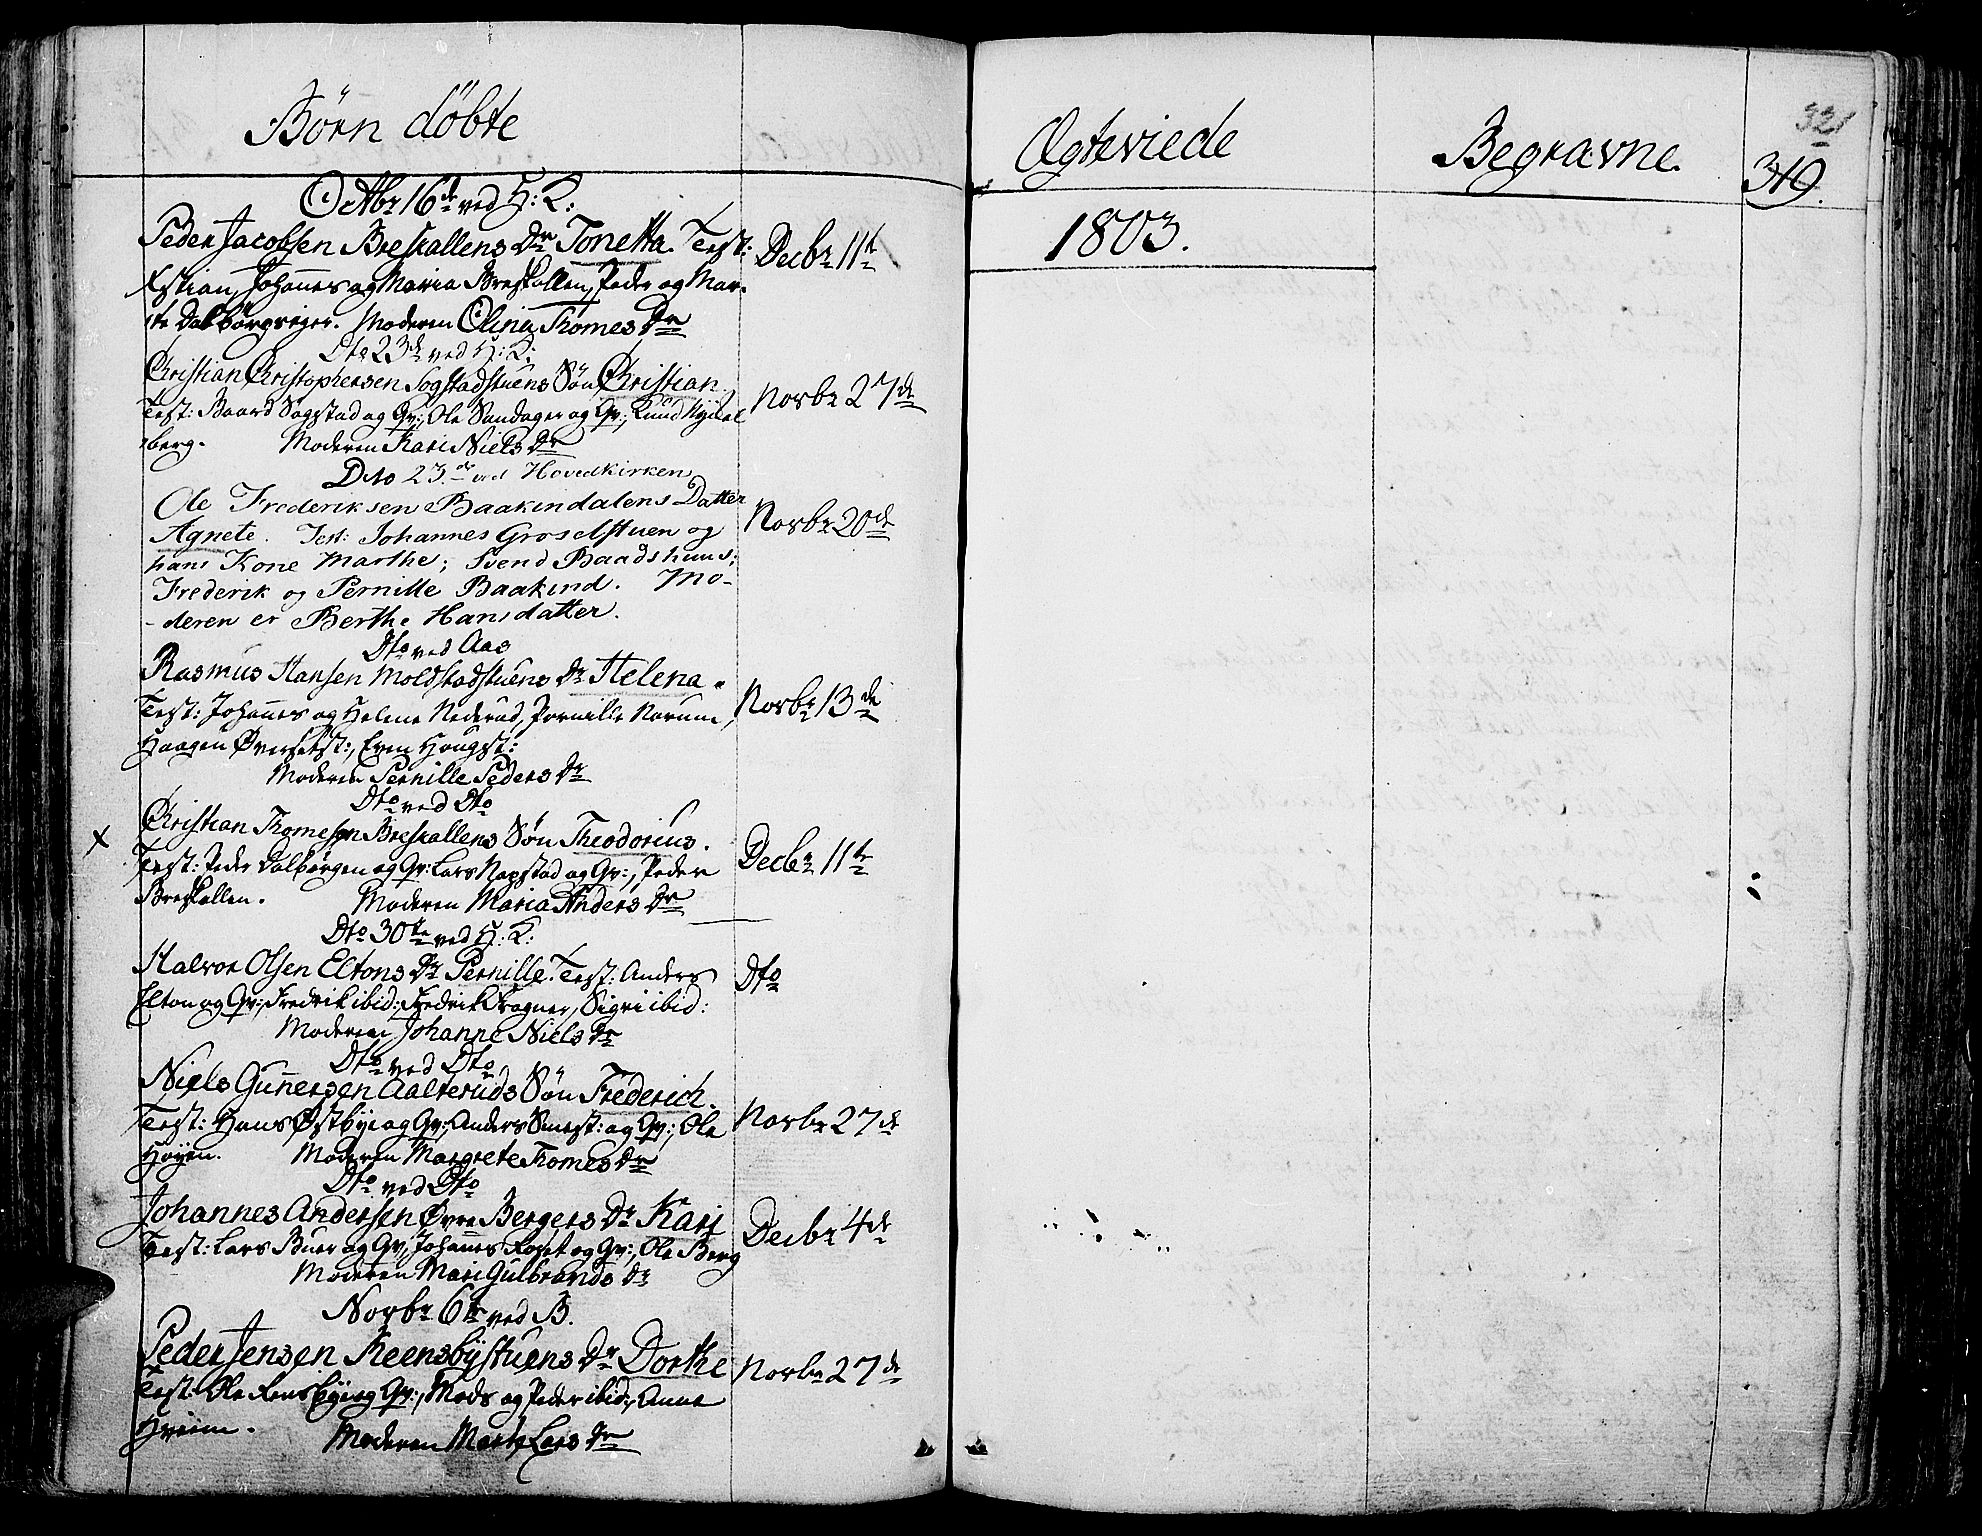 Børn døbte
Octbr 16de ved H: K:
Peder Jacobsen Breskallens Dr Tonetta. Test:
Xstian, Johannes og Maria Breskallen, Peder og Mar-
te Dalbørgviger. Moderen Olina Thomes Dr
Decbr 11te
Dto 23de ved H: K:
Christian Christophersen Sogstadstuens Søn Christian.
Test: Baard Sogstad og Qv:, Ole Sandager og Qv:, Knud
berg. Moderen Kari Niels Dr
Novbr 27de
Dto 23de ved Hovedkirken
Ole Frederiksen Baakindalens Datter
Agnete. Test: Johannes Groselstuen og
hans Kone Marthe; Svend Baadshuus;
Frederik og Pernille Baakind. Mo-
-deren er Berthe Hansdatter.
Novbr 20de
Dto ved Aas
Rasmus Hansen Moldstadstuens Dr Helena.
Test: Johannes og Helene Nederud, Pernille Narum,
Haagen Øversetst:, Even Haugst:
Moderen Pernille Peders Dr
Novbr 13de
Dto ved Dto
X Christian Thomesen Breskallens Søn Theodorius.
Test: Peder Dalbørgen og Qv: Lars Napstad og Qv:, Peder
Breskallen. Moderen Maria Anders Dr
Decbr 11te
Dto 30te ved H: K:
Halvor Olsen Eltons Dr Pernille. Test: Anders
Elton og Qv:, Fredrik ibid:, Fredrik Kragner, Sigri ibid:
Moderen Johanne Niels Dr
Dto
Dto ved Dto
Niels Gunersen Aalteruds Søn Frederich.
Test: Hans Østbye og Qv:, Anders Smest: og Qv:, Ole
Høyen. Moderen Margrete Thomes Dr
Novbr 27de
Dto ved Dto
Johannes Andersen Øvre Bergers Dr Kari
Test: Lars Buer og Qv, Johannes Roset og Qv:, Ole Berg
Moderen Mari Gulbrands Dr
Decbr 4de
Novbr 6te ved B.
Peder Jensen Reensbystuens Dr Dorthe
Test: Ole Rensbye og Qv:, Mads og Peder ibid:, Anne
Hveem. Moderen Marte Lars Dr
Novbr 27de
Ægteviede
1803.
Begravne.
321
319.